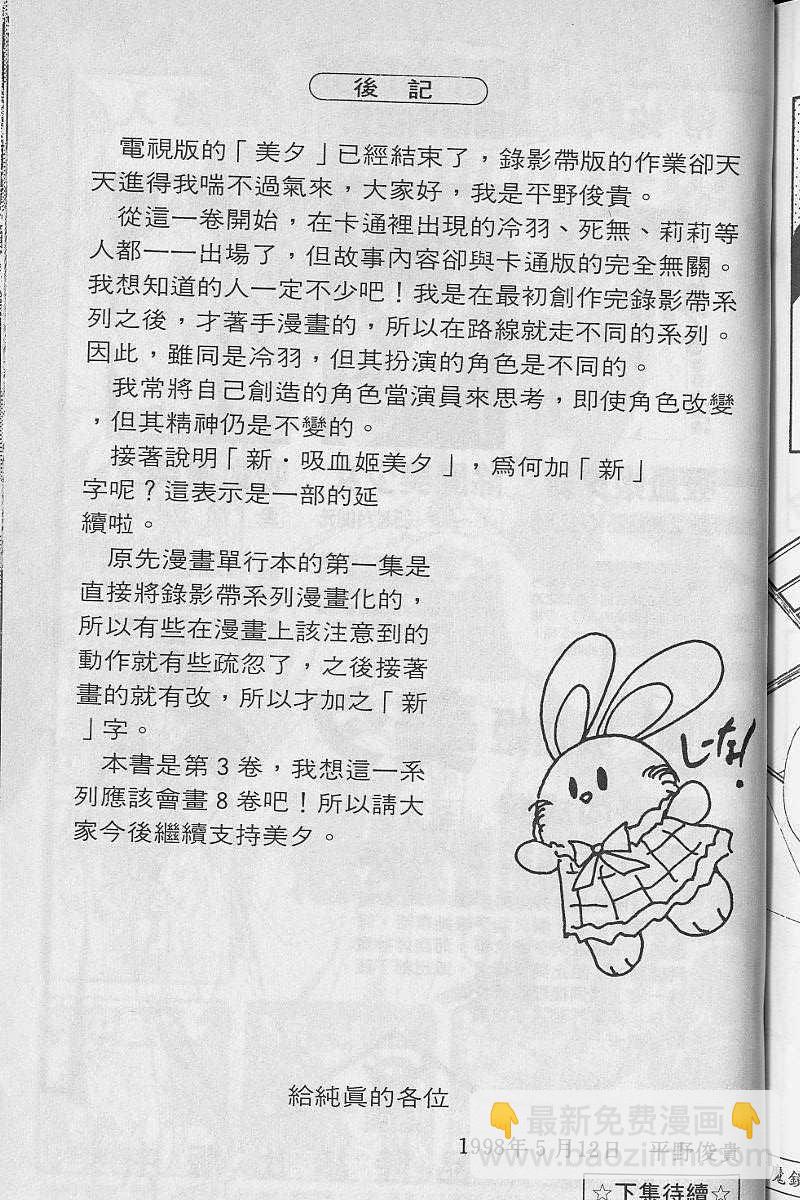 後 記
電視版的「美夕」已經結束了，錄影帶版的作業卻天
天進得我喘不過氣來，大家好，我是平野俊貴。
從這一卷開始，在卡通裡出現的冷羽、死無、莉莉等
人都一一出場了，但故事內容卻與卡通版的完全無關。
我想知道的人一定不少吧！我是在最初創作完錄影帶系
列之後，才著手漫畫的，所以在路線就走不同的系列。
因此，雖同是冷羽，但其扮演的角色是不同的。
我常將自己創造的角色當演員來思考，即使角色改變
，但其精神仍是不變的。
接著說明「新・吸血姬美夕」，爲何加「新」
字呢？這表示是一部的延
續啦。
原先漫畫單行本的第一集是
直接將錄影帶系列漫畫化的，
所以有些在漫畫上該注意到的
動作就有些疏忽了，之後接著
畫的就有改，所以才加之「新
」字。
本書是第3卷，我想這一系
列應該會畫8卷吧！所以請大
家今後繼續支持美夕。
給純眞的各位
👇最新免费漫画👇
1998年5月12日 平野俊貴
www.baozimh.com
☆下集待續☆